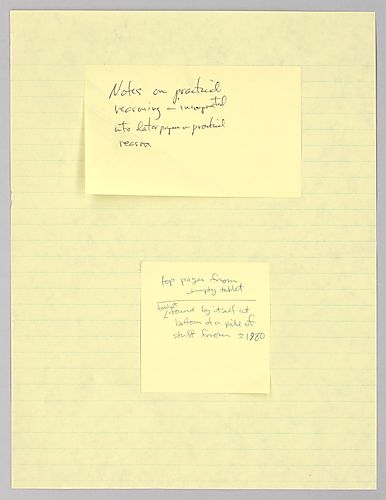 Notes on practical
reasoning – incorporated
into later paper on practical
reason
top pages from
empty tablet
tablet
found by itself at
bottom of a pile of
stuff from ≈ 1980